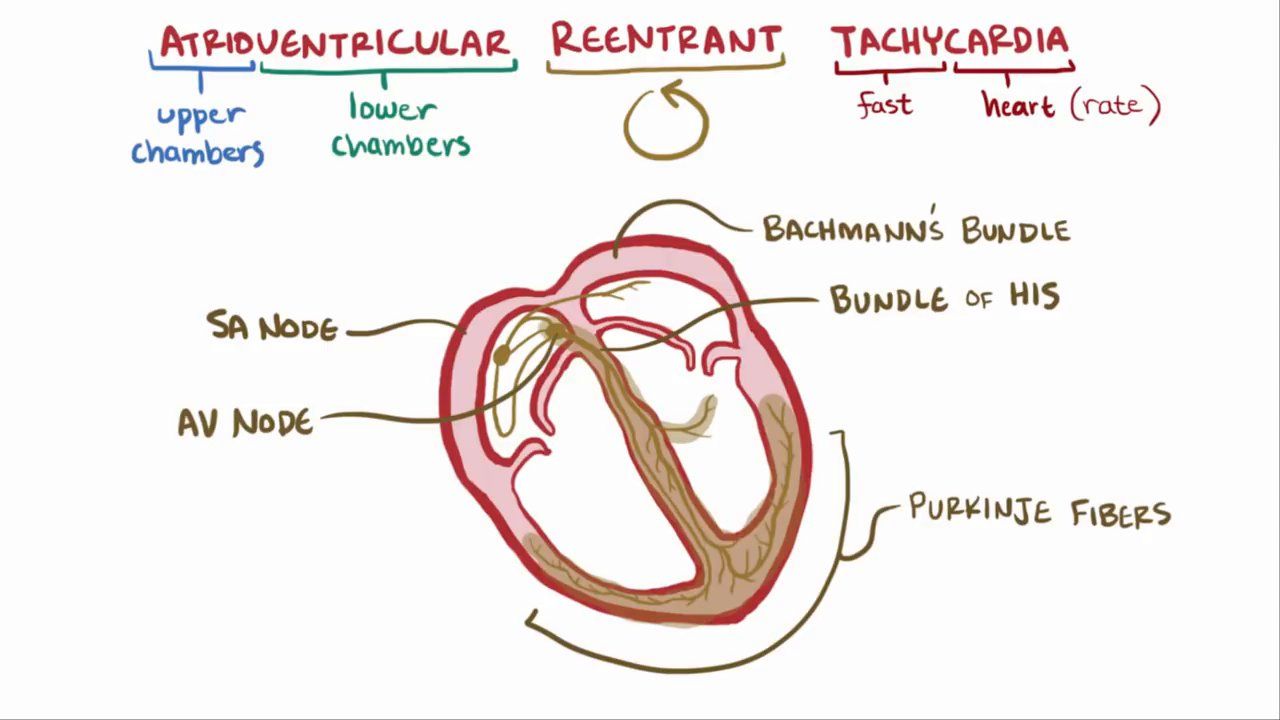 ATRIOVENTRICULAR REENTRANT TACHYCARDIA
upper chambers
lower chambers
fast
heart (rate)
BACHMANN'S BUNDLE
BUNDLE OF HIS
SA NODE
AV NODE
PURKINJE FIBERS